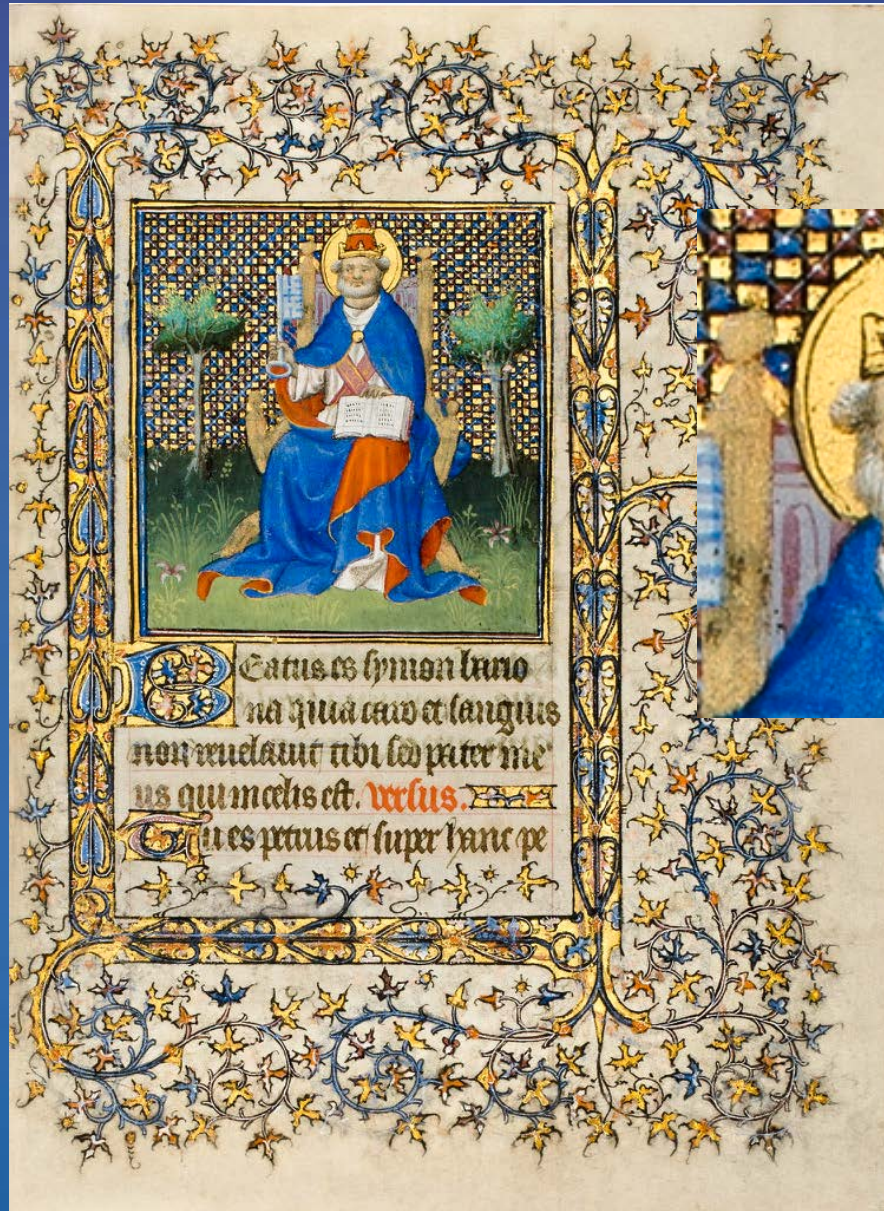 Beatus es symon bario
na quia caro et sanguis
non reuelauit tibi sed pater me
us qui in celis est. versus.
Tu es petrus et super hanc pe